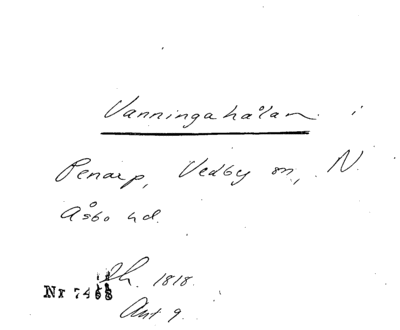 Vanningahålan i
Penarp, Vedby sn, N.
Åsbo hd.
Sk. 1818.
Nr 7468
Ant 9.